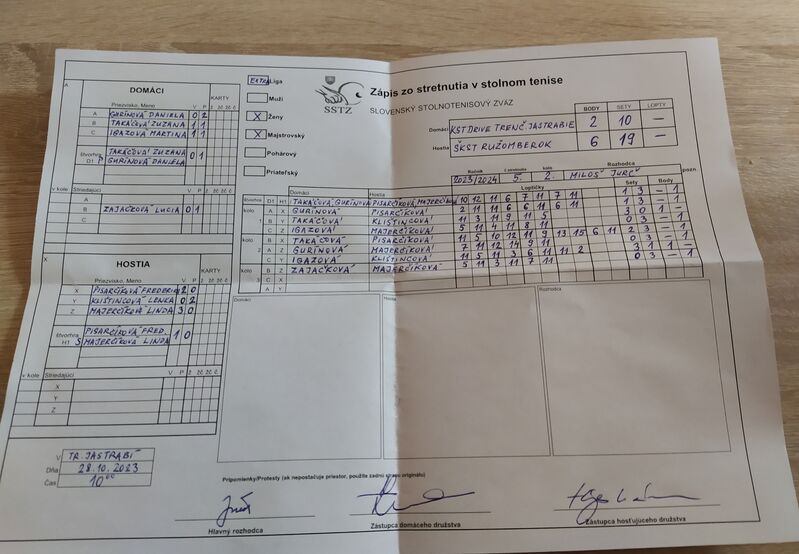 EXTRA Liga
Muži
X Ženy
X Majstrovský
Pohárový
Priateľský
SSTZ
Zápis zo stretnutia v stolnom tenise
SLOVENSKÝ STOLNOTENISOVÝ ZVÄZ
BODY SETY LOPTY
Domáci KST DRIVE TRENČ. JASTRABIE 2 10 —
Hostia ŠKST RUŽOMBEROK 6 19 —
Ročník č.stretnutia kolo Rozhodca
2023/2024 5. 2. MILOŠ JURČ
DOMÁCI
Priezvisko, Meno V P KARTY
A GURÍNOVÁ DANIELA 0 2
B TAKÁČOVÁ ZUZANA 1 1
C IGAZOVÁ MARTINA 1 1
štvorhra TAKÁČOVÁ ZUZANA 0 1
D1 GURÍNOVÁ DANIELA
v kole Striedajúci
A
B ZAJAČKOVÁ LUCIA 0 1
C
HOSTIA
Priezvisko, Meno V P KARTY
X PISARČÍKOVÁ FREDERIKA 2 0
Y KLIŠTINCOVÁ LENKA 0 2
Z MAJERČÍKOVÁ LINDA 3 0
štvorhra PISARČÍKOVÁ FRED. 1 0
H1 MAJERČÍKOVÁ LINDA
v kole Striedajúci V P
X
Y
Z
V TR. JASTRABÍ
Dňa 28.10.2023
Čas 10⁰⁰
Domáci Hostia Loptičky Sety Body pozn.
štvorhra D1 H1 TAKÁČOVÁ, GURÍNOVÁ PISARČÍKOVÁ, MAJERČÍKOVÁ 10 12 11 6 7 11 7 11 1 3 — 1
kolo A X GURÍNOVÁ PISARČÍKOVÁ 2 11 11 6 6 11 6 11 1 3 — 1
1 B Y TAKÁČOVÁ KLIŠTINCOVÁ 11 3 11 9 11 5 3 0 1 —
C Z IGAZOVÁ MAJERČÍKOVÁ 5 11 4 11 8 11 0 3 — 1
kolo B X TAKÁČOVÁ PISARČÍKOVÁ 11 5 10 12 11 9 13 15 6 11 2 3 — 1
2 A Z GURÍNOVÁ MAJERČÍKOVÁ 7 11 12 14 9 11 0 3 — 1
C Y IGAZOVÁ KLIŠTINCOVÁ 11 5 11 3 6 11 11 2 3 1 1 —
kolo B Z ZAJAČKOVÁ MAJERČÍKOVÁ 5 11 3 11 7 11 0 3 — 1
3 C X
A Y
Domáci
Hostia
Rozhodca
Pripomienky/Protesty (ak nepostačuje priestor, použite zadnú stranu originálu)
Hlavný rozhodca
Zástupca domáceho družstva
Zástupca hosťujúceho družstva